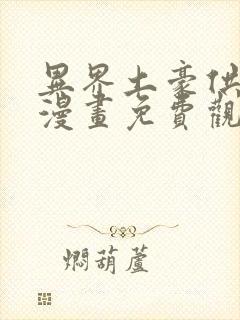 異界土豪供
漫畫免費觀
燜葫蘆